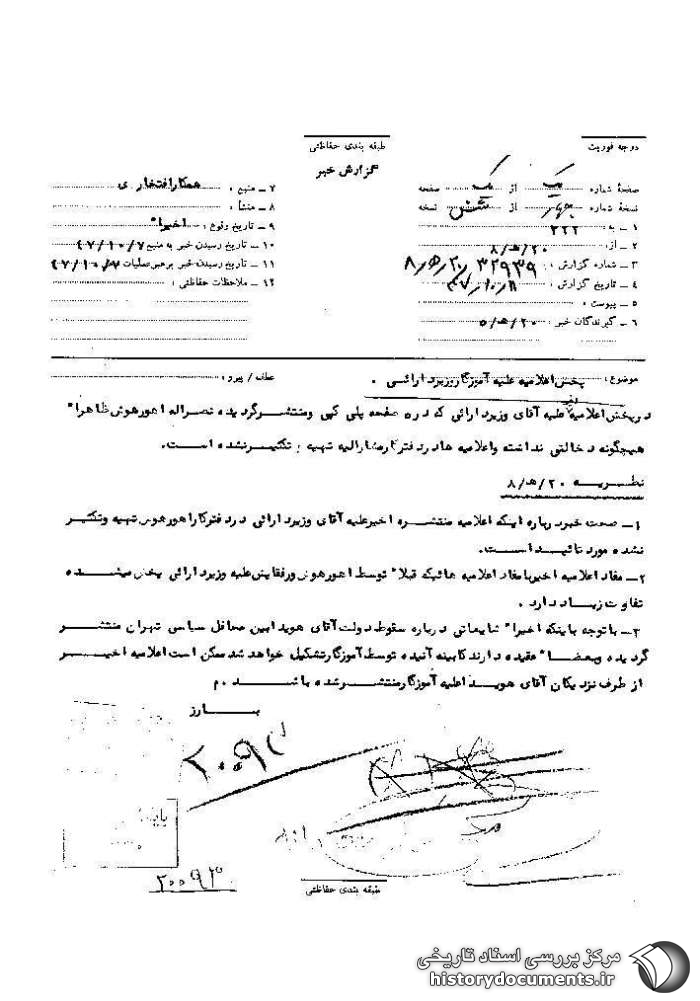 درجه فوریت
طبقه بندی حفاظتی
گزارش خبر
صفحهٔ شماره یک از یک صفحه
نسخهٔ شماره چهار از شش نسخه
۱ – به: ۳۲۲
۲ – از: ۲۰/هـ/۸
۳ – شماره گزارش: ۳۲۹۳۹/۲۰/هـ/۸
۴ – تاریخ گزارش: ۴۷/۱۰/۸
۵ – پیوست:
۶ – گیرندگان خبر: ۲۰/هـ/۵
۷ – منبع: همکار افتخاری
۸ – منشأ:
۹ – تاریخ وقوع: اخیرا"
۱۰ – تاریخ رسیدن خبر به منبع ۴۷/۱۰/۷
۱۱ – تاریخ رسیدن خبر برهبر عملیات ۴۷/۱۰/۷
۱۲ – ملاحظات حفاظتی:
موضوع: پخش اعلامیه علیه آموزگار وزیر دارائی .
عطف / پیرو:
در پخش اعلامیه علیه آقای وزیر دارائی که در ۵ صفحه پلی کپی و منتشر گردیده نصراله اهورهوش ظاهرا"
هیچگونه دخالتی نداشته و اعلامیه ها در دفتر کار مشارالیه تهیه و تکثیر نشده است.
نظریه ۲۰/هـ/۸
۱ – صحت خبر درباره اینکه اعلامیه منتشره اخیر علیه آقای وزیر دارائی در دفتر کار اهورهوش تهیه و تکثیر
نشده مورد تائید است.
۲ – مفاد اعلامیه اخیر با مفاد اعلامیه هائیکه قبلا" توسط اهورهوش و رفقایش علیه وزیر دارائی پخش میشده
تفاوت زیاد دارد .
۳ – با توجه باینکه اخیرا" شایعاتی درباره سقوط دولت آقای هویدا بین محافل سیاسی تهران منتشر
گردیده و بعضا" عقیده دارند کابینه آتیه توسط آموزگار تشکیل خواهد شد ممکن است اعلامیه اخیر
از طرف نزدیکان آقای هویدا علیه آموزگار منتشر شده باشد .م
بارز
۲۰۰۹۳
طبقه بندی حفاظتی
مرکز بررسی اسناد تاریخی
historydocuments.ir